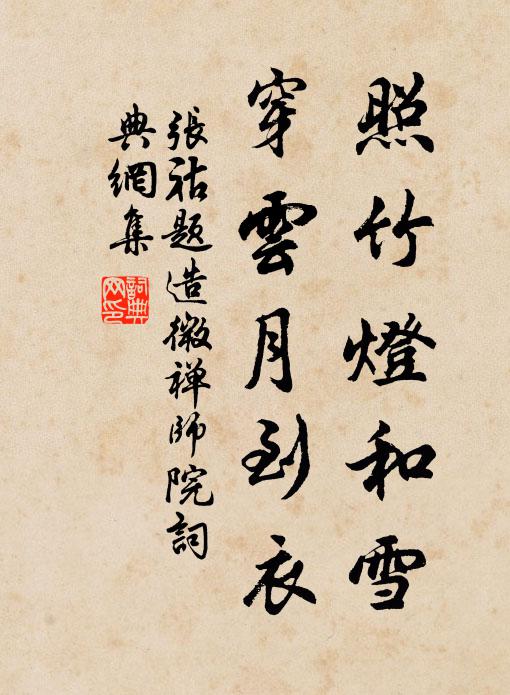 照竹燈和雪
穿雲月到衣
張祜題造微禅師院詞
典網集
詞典
网印